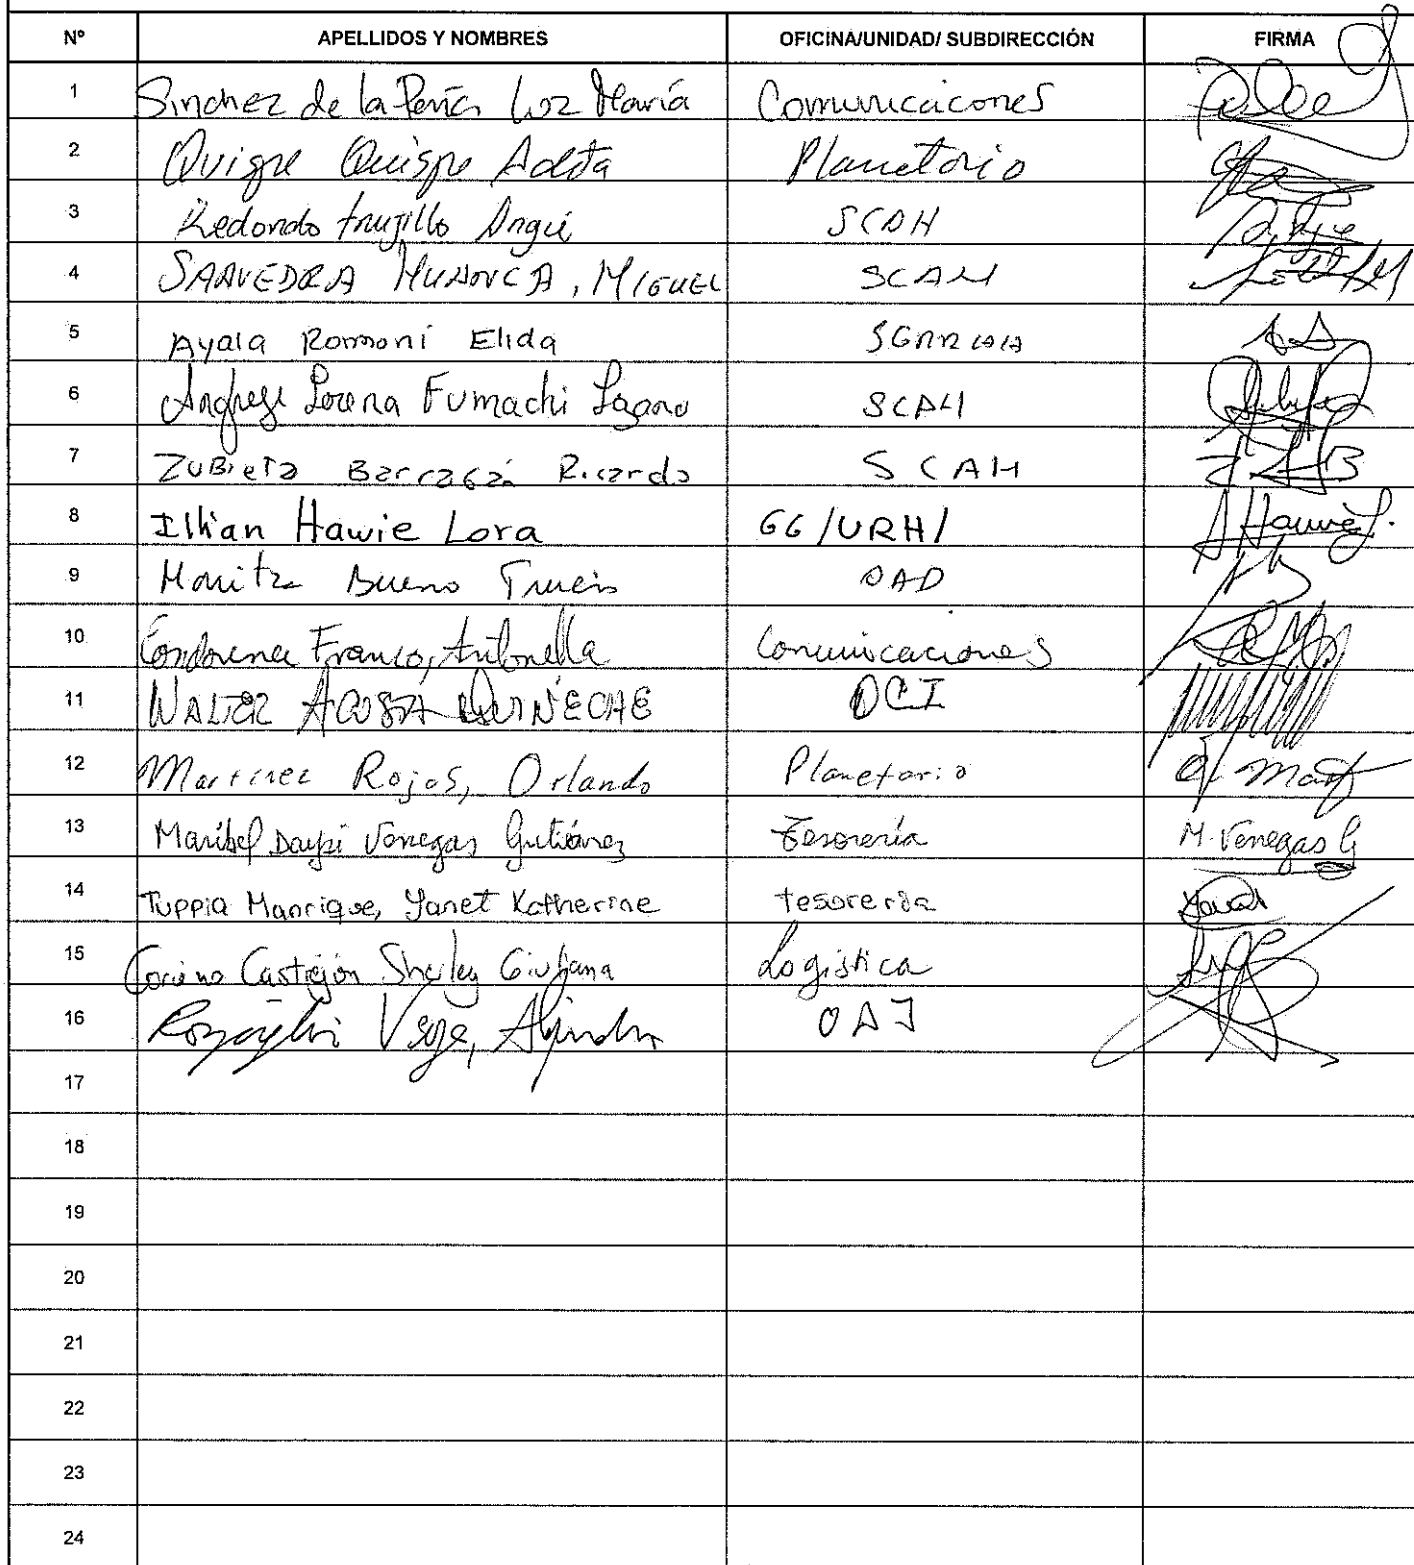 Nº APELLIDOS Y NOMBRES OFICINA/UNIDAD/ SUBDIRECCIÓN FIRMA
1 Sinchez de la Peña Luz María Comunicaciones
2 Quispe Quispe Planetorio
3 Redondo trujillo Angie SCAH
4 SAAVEDRA HUANCA, MIGUEL SCAH
5 Ayala Romaní Elida
6 Lorena Fumachi Lozano SCAH
7 ZUBieTa Barragán Ricardo SCAH
8 Illian Hawie Lora GG/URH/ Hawie L.
9 Maritza Bueno Trucios OAD
10 Franco, Antonella Comunicaciones
11 WALTER ACOSTA QUIÑECHE OCI
12 Martinez Rojas, Orlando Planetario
13 Maribel Venegas Gutiérrez Tesorería M. Venegas G
14 Tuppia Manrique, Yanet Katherine tesoreria
15 Castrejón Sheyley Giuliana Logística
16 Vega, Alejandro OAJ
17
18
19
20
21
22
23
24